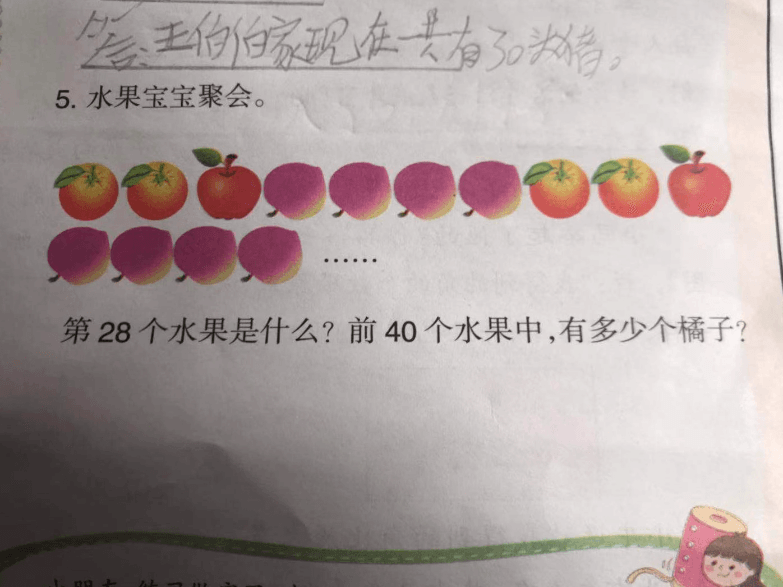 答：王伯伯家现在一共有30头猪。
5. 水果宝宝聚会。
……
第 28 个水果是什么？前 40 个水果中，有多少个橘子？